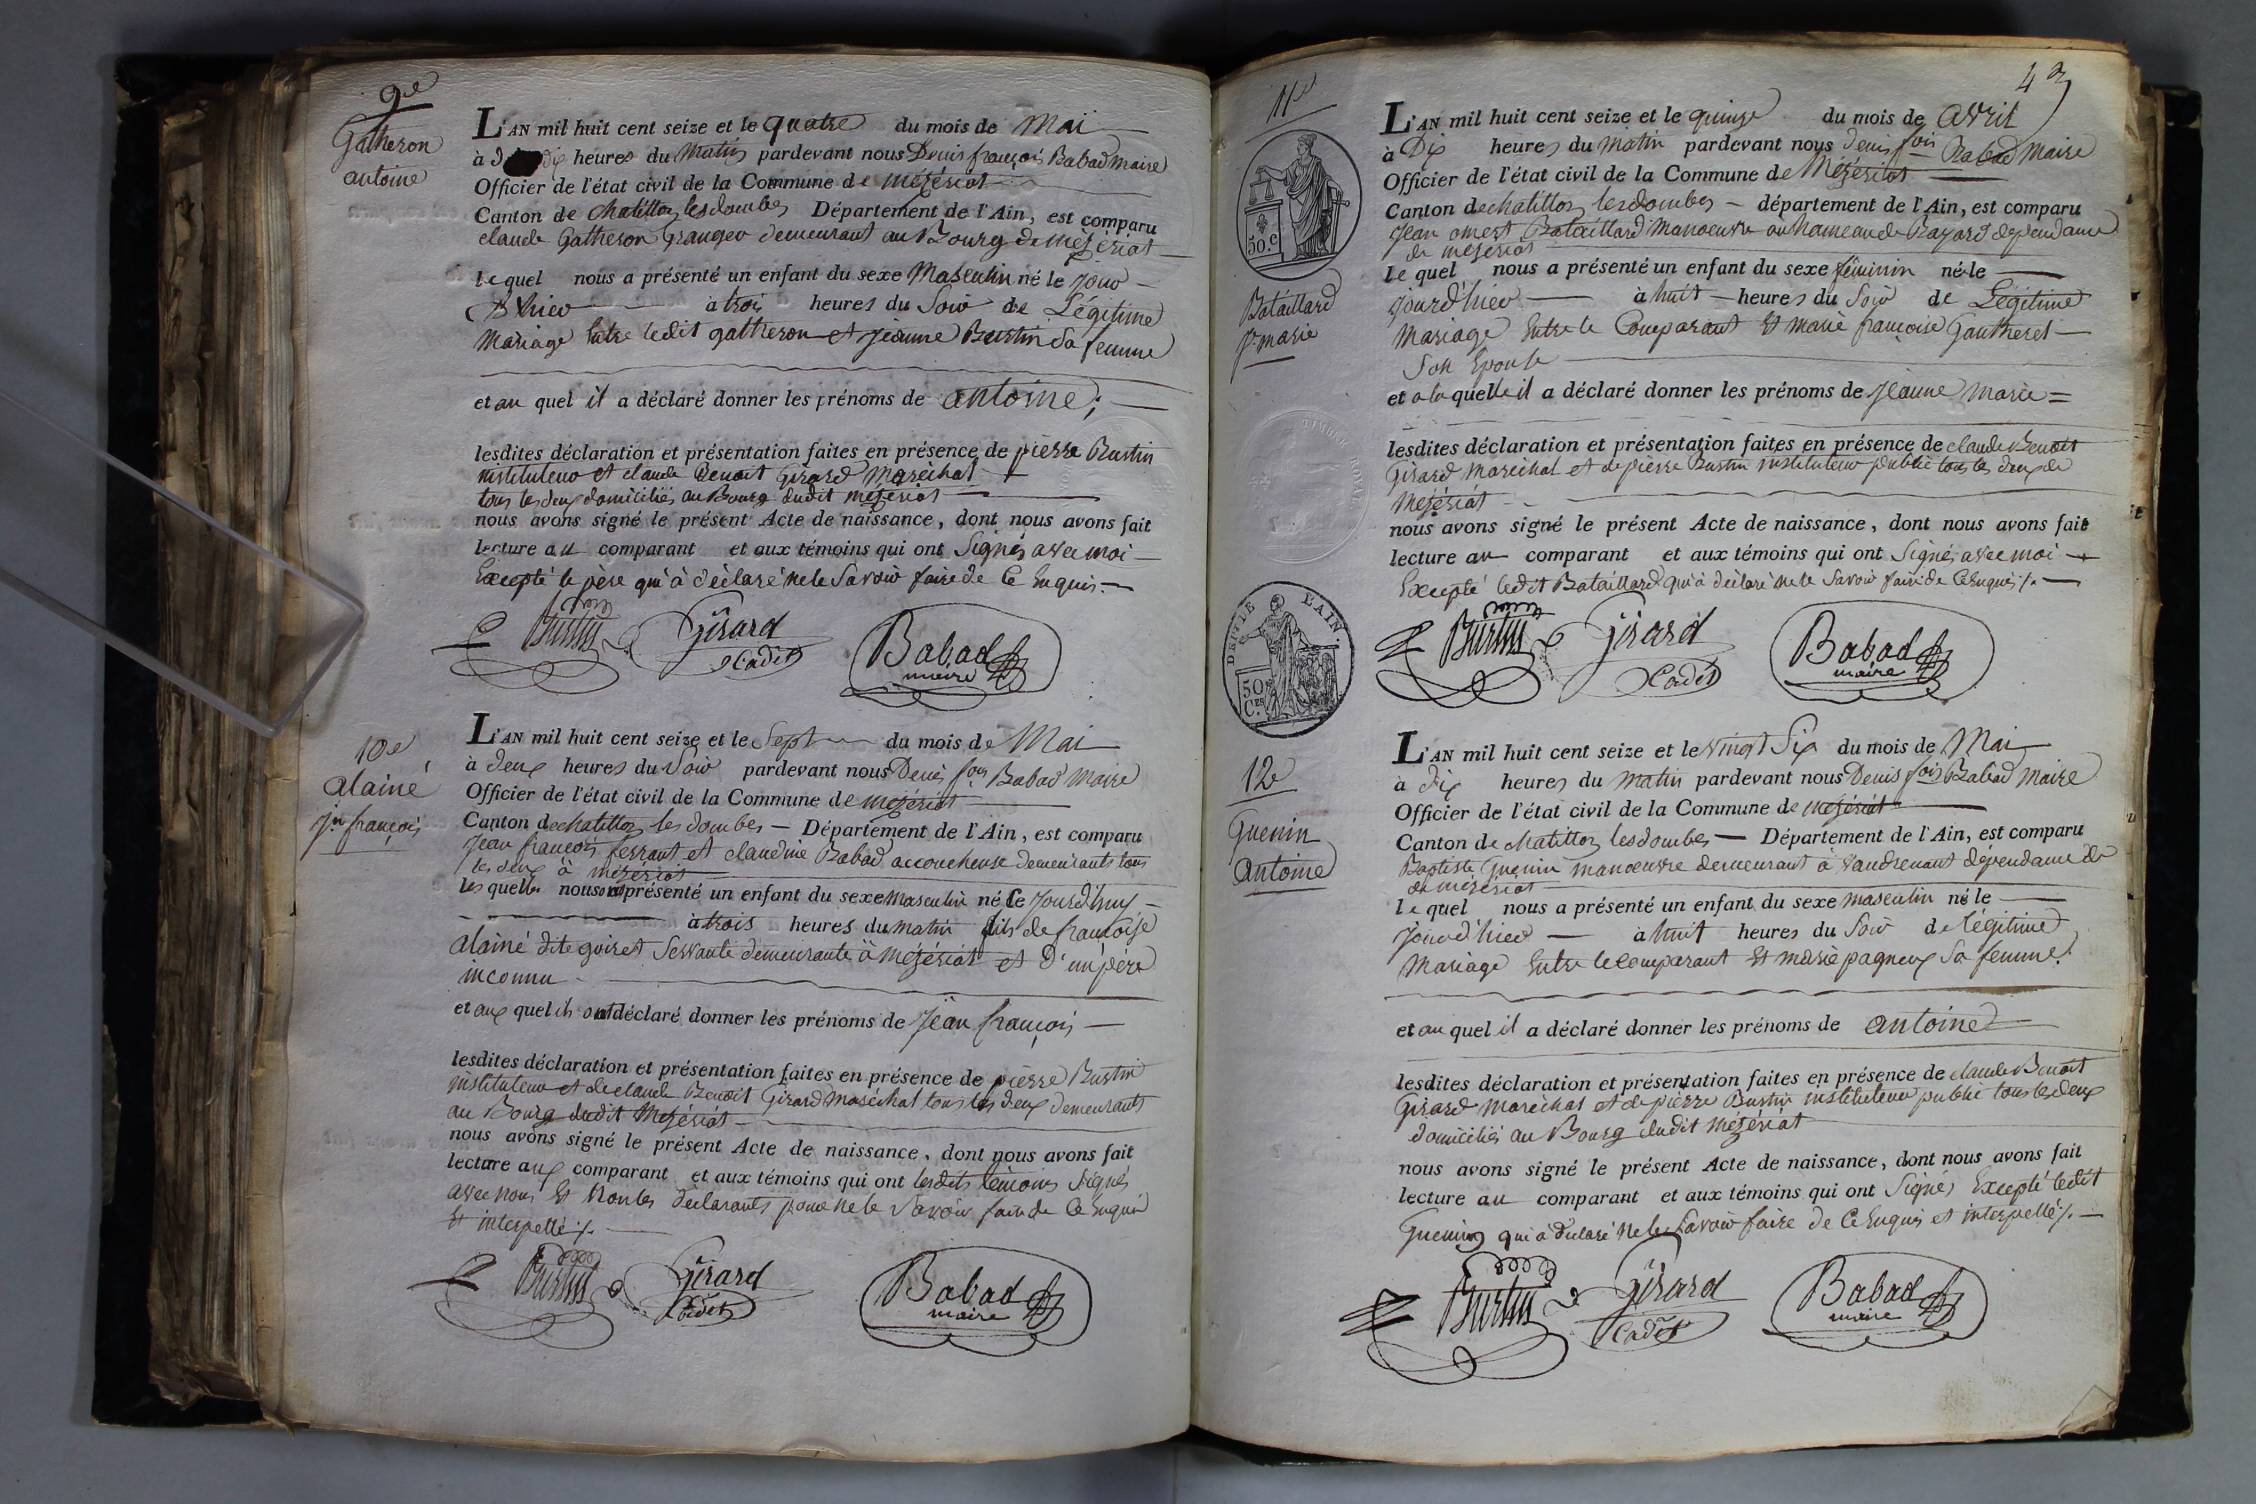 9e
Gatheron
antoine
L'AN mil huit cent seize et le quatre du mois de Mai
à dix heures du Matin pardevant nous Denis françois Babad maire
Officier de l'état civil de la Commune de mézériat
Canton de chatillon lesdombes Département de l'Ain, est comparu
claude Gatheron Granger demeurant au Bourg de mézériat
lequel nous a présenté un enfant du sexe Masculin né le jour
D'hier à trois heures du Soir de Légitime
Mariage Entre ledit gatheron et jeanne Burtin Sa femme
et au quel il a déclaré donner les prénoms de antoine;
lesdites déclaration et présentation faites en présence de pierre Burtin
instituteur et claude Benoit Girard Maréchal
tous les deux domiciliés au Bourg dudit mézériat
nous avons signé le présent Acte de naissance, dont nous avons fait
lecture au comparant et aux témoins qui ont Signés avec moi
Excepté le père qui à déclaré ne le Savoir faire de Ce Enquis.
Burtin Girard Cadet Babad maire
10e
alainé
jn françois
L'AN mil huit cent seize et le Sept du mois de Mai
à deux heures du Soir pardevant nous Denis fois Babad Maire
Officier de l'état civil de la Commune de mézériat
Canton de chatillon les dombes Département de l'Ain, est comparu
jean françois ferrant et claudine Babad accoucheuse demeurants tous
les deux à mézériat
lesquels nous ont présenté un enfant du sexe masculin né le jourd'huy
à trois heures du matin fils de françoise
alainé dite goiret Servante demeurante à mézériat et d'un père
inconnu
et aux quel ils ont déclaré donner les prénoms de jean françois
lesdites déclaration et présentation faites en présence de pierre Burtin
instituteur et de claude Benoit Girard Maréchal tous les deux demeurants
au Bourg dudit Mézériat
nous avons signé le présent Acte de naissance, dont nous avons fait
lecture aux comparant et aux témoins qui ont lesdits témoins Signés
avec nous Et Non les déclarants pour ne le Savoir faire de Ce Enquis
Et interpellé ./.
Burtin Girard Cadet Babad maire
43
11e
50.c
Bataillard
jne marie
TIMBRE ROYAL
L'AN mil huit cent seize et le quinze du mois de avril
à Dix heures du matin pardevant nous denis fois Babad Maire
Officier de l'état civil de la Commune de Mézériat
Canton de chatillon lesdombes département de l'Ain, est comparu
jean Bataillard Manoeuvre au hameau de Bayard dependance
de mézériat
lequel nous a présenté un enfant du sexe féminin né le
jourd'hier à huit heures du Soir de Légitime
Mariage Entre le Comparant Et marie françoise Gautheret
Son Epouse
et a laquelle il a déclaré donner les prénoms de jeanne marie
lesdites déclaration et présentation faites en présence de claude Benoit
Girard Maréchal et de pierre Burtin instituteur public tous les deux de
Mézériat
nous avons signé le présent Acte de naissance, dont nous avons fait
lecture au comparant et aux témoins qui ont Signé, avec moi
Excepté ledit Bataillard qui à déclaré ne le Savoir faire de Ce Enquis ./.
Burtin Girard Cadet Babad maire
DEPT DE L'AIN.
50 Ces
12e
Guenin
antoine
L'AN mil huit cent seize et le vingt Six du mois de Mai
à dix heures du matin pardevant nous Denis fois Babad Maire
Officier de l'état civil de la Commune de mézériat
Canton de chatillon lesdombes Département de l'Ain, est comparu
Baptiste Guenin manoeuvre demeurant à vaudrenant dépendance de
de mézériat
lequel nous a présenté un enfant du sexe masculin né le
jourd'hier à huit heures du Soir de légitime
Mariage Entre le comparant Et marie pagneux Sa femme.
et au quel il a déclaré donner les prénoms de antoine
lesdites déclaration et présentation faites en présence de claude Benoit
Girard Maréchal et de pierre Burtin instituteur public tous les deux
domiciliés au Bourg dudit Mézériat
nous avons signé le présent Acte de naissance, dont nous avons fait
lecture au comparant et aux témoins qui ont Signés Excepté ledit
Guenin qui à déclaré ne le Savoir faire de Ce Enquis et interpellé ./.
Burtin Girard Cadet Babad maire